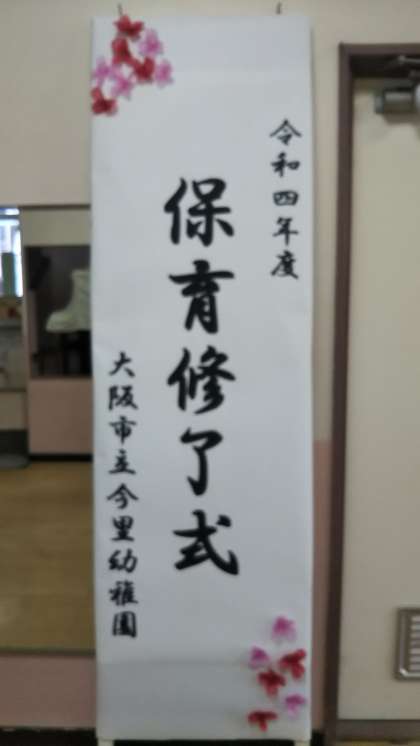 令和四年度
保育修了式
大阪市立今里幼稚園